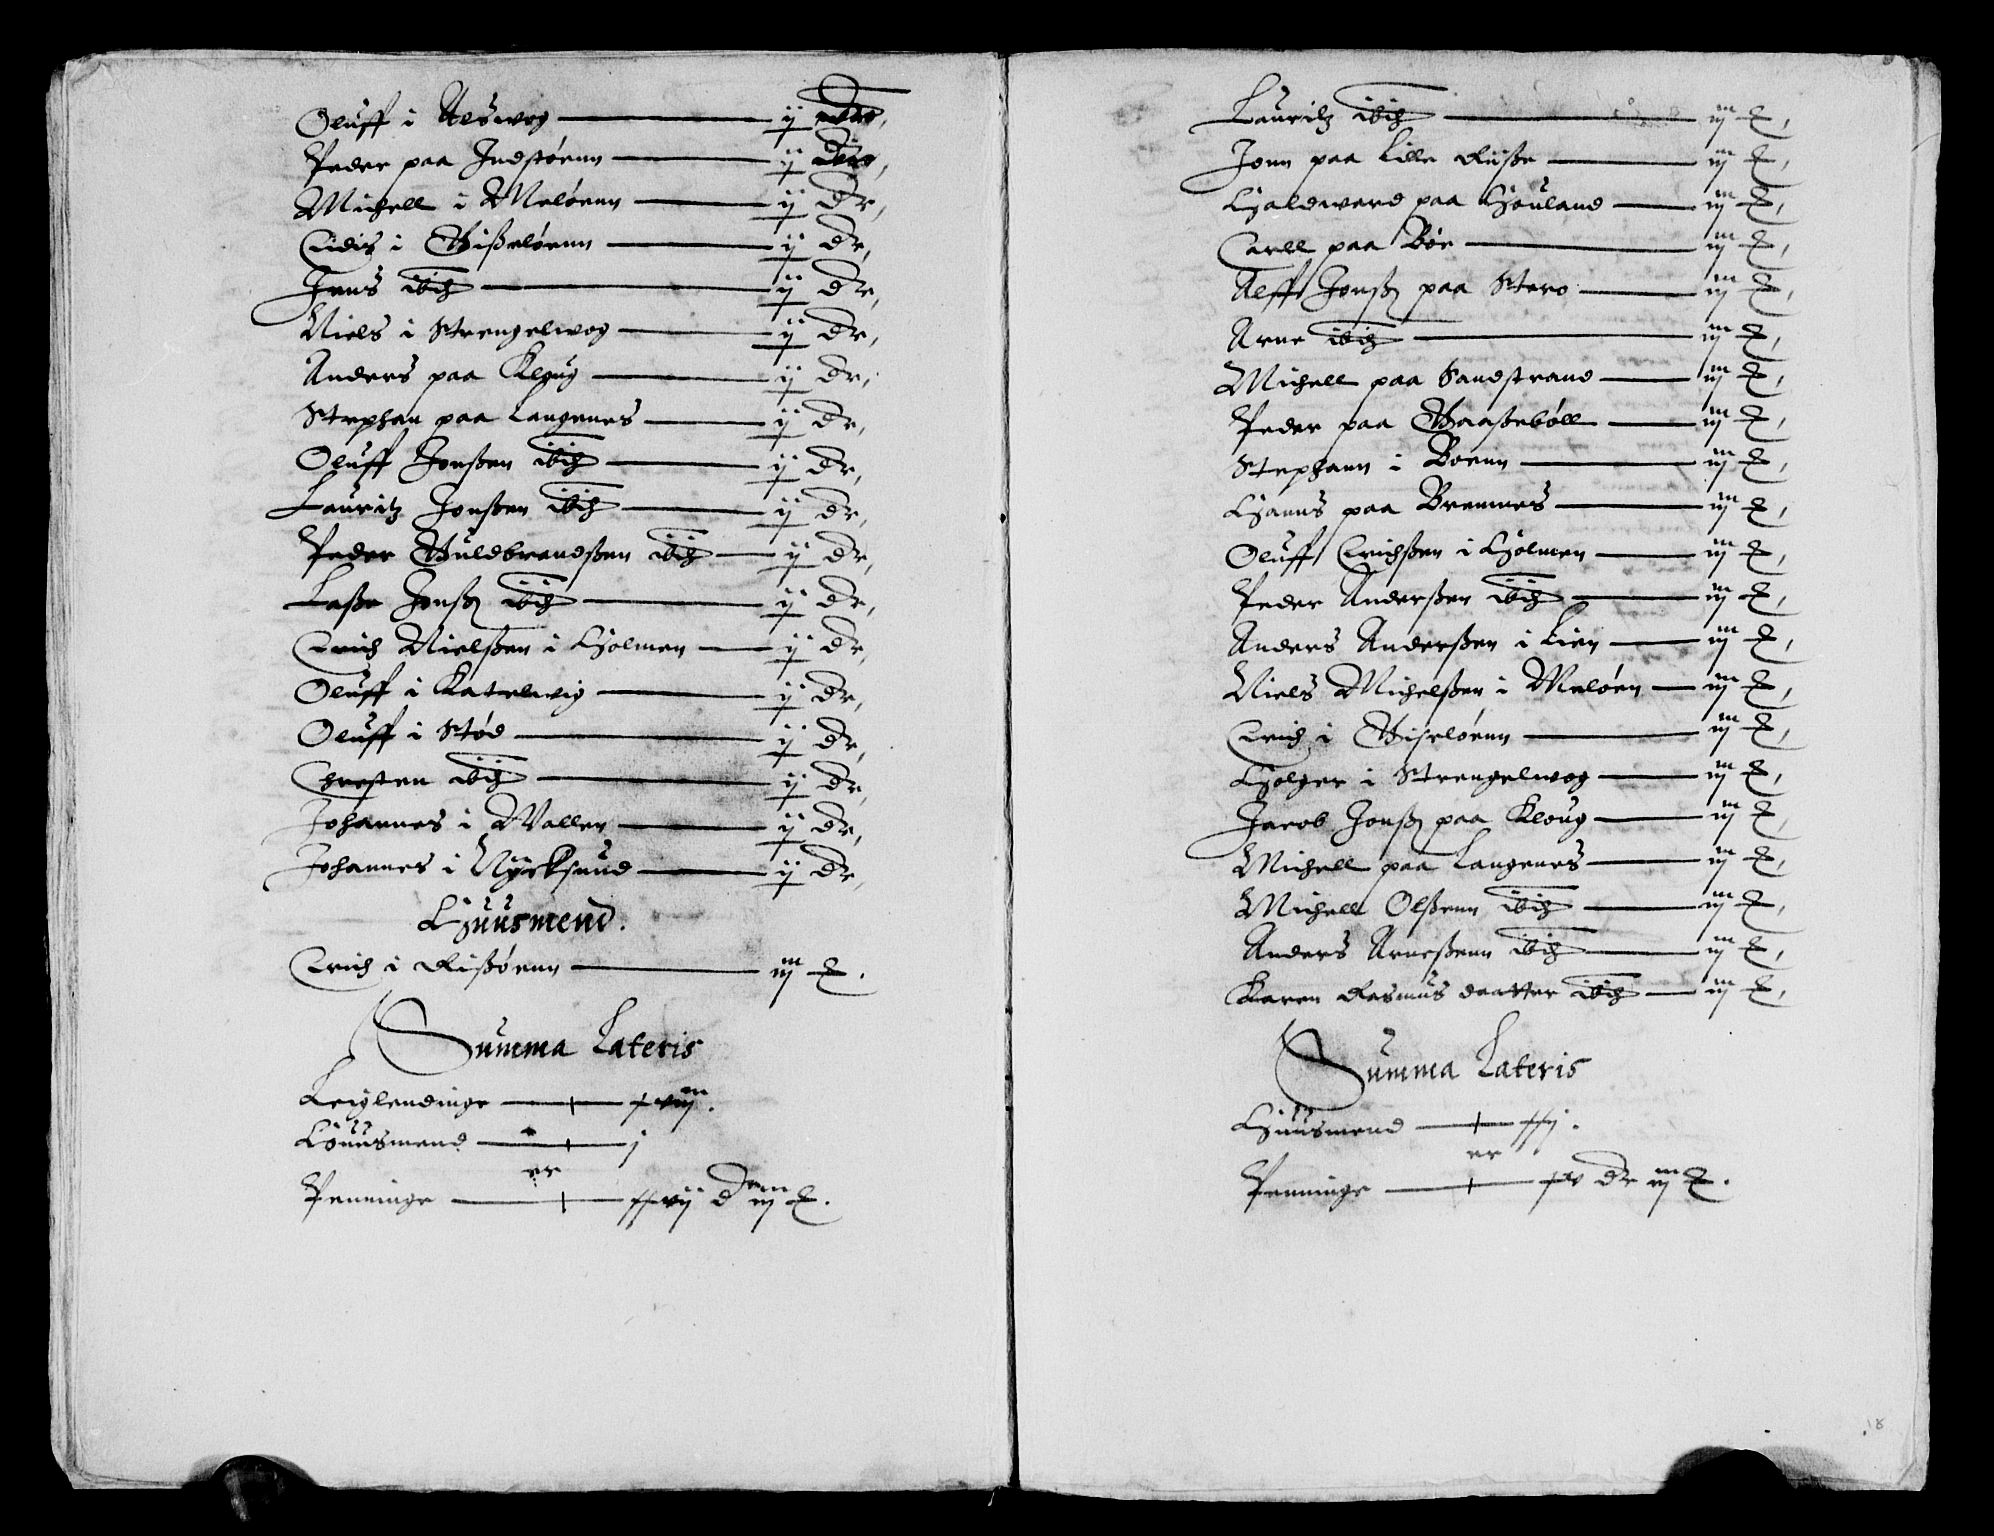 Oluff i Alswog — ij dr,
Peder paa Indstøenn — ij dr,
Michell i Meløenn — ij dr,
Eidis i Gißeløenn — ij dr,
Jens ibid — ij dr,
Niels i Strengelwog — ij dr,
Anders paa Kloug — ij dr,
Stephan paa Langenes — ij dr,
Oluff Jonßen ibid — ij dr,
Lauritz Jonßen ibid — ij dr,
Peder Guldbrandßen ibid — ij dr,
Laße Jonßen ibid — ij dr,
Erich Nielßen i Holmen — ij dr,
Oluff i Katelwig — ij dr,
Oluff i Stød — ij dr,
Chresten ibid — ij dr,
Johannes i Wallen — ij dr,
Johannes i Nycksund — ij dr,
Huusmend.
Erich i Rißøenn — iij m ß.
Summa Lateris
Leiglendinge — xviij.
Huusmend — j
er
Penninge — xxxvij dr iij m ß.
Lauritz ibid — iij m ß,
Jonn paa Lille Riiße — iij m ß,
Haldward paa Houland — iij m ß,
Carll paa Bøe — iij m ß,
Alff Jonßen paa Stero — iij m ß,
Arne ibid — iij m ß,
Michell paa Sandstrand — iij m ß,
Peder paa Gaaßebøll — iij m ß,
Stephann i Boenn — iij m ß,
Hanns paa Bremnes — iij m ß,
Oluff Erichßen i Holmen — iij m ß,
Peder Anderßen ibid — iij m ß,
Anders Anderßen i Lien — iij m ß,
Niels Michelßen i Meløen — iij m ß,
Erich i Giseløenn — iij m ß,
Holger i Strengelwog — iij m ß,
Jacob Jonßen paa Kloug — iij m ß,
Michell paa Langenes — iij m ß,
Michell Olßenn ibid — iij m ß,
Anders Arneßenn ibid — iij m ß,
Karen Rasmus daatter ibid — iij m ß,
Summa Lateris
Huusmend — xxj.
er
Penninge — xv dr iij m ß.
18